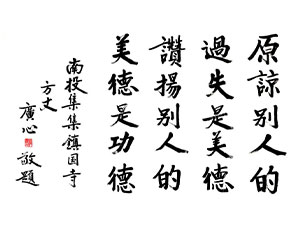 原諒別人的
過失是美德
讚揚別人的
美德是功德
南投集集鎮國寺
方丈
廣心
敬題